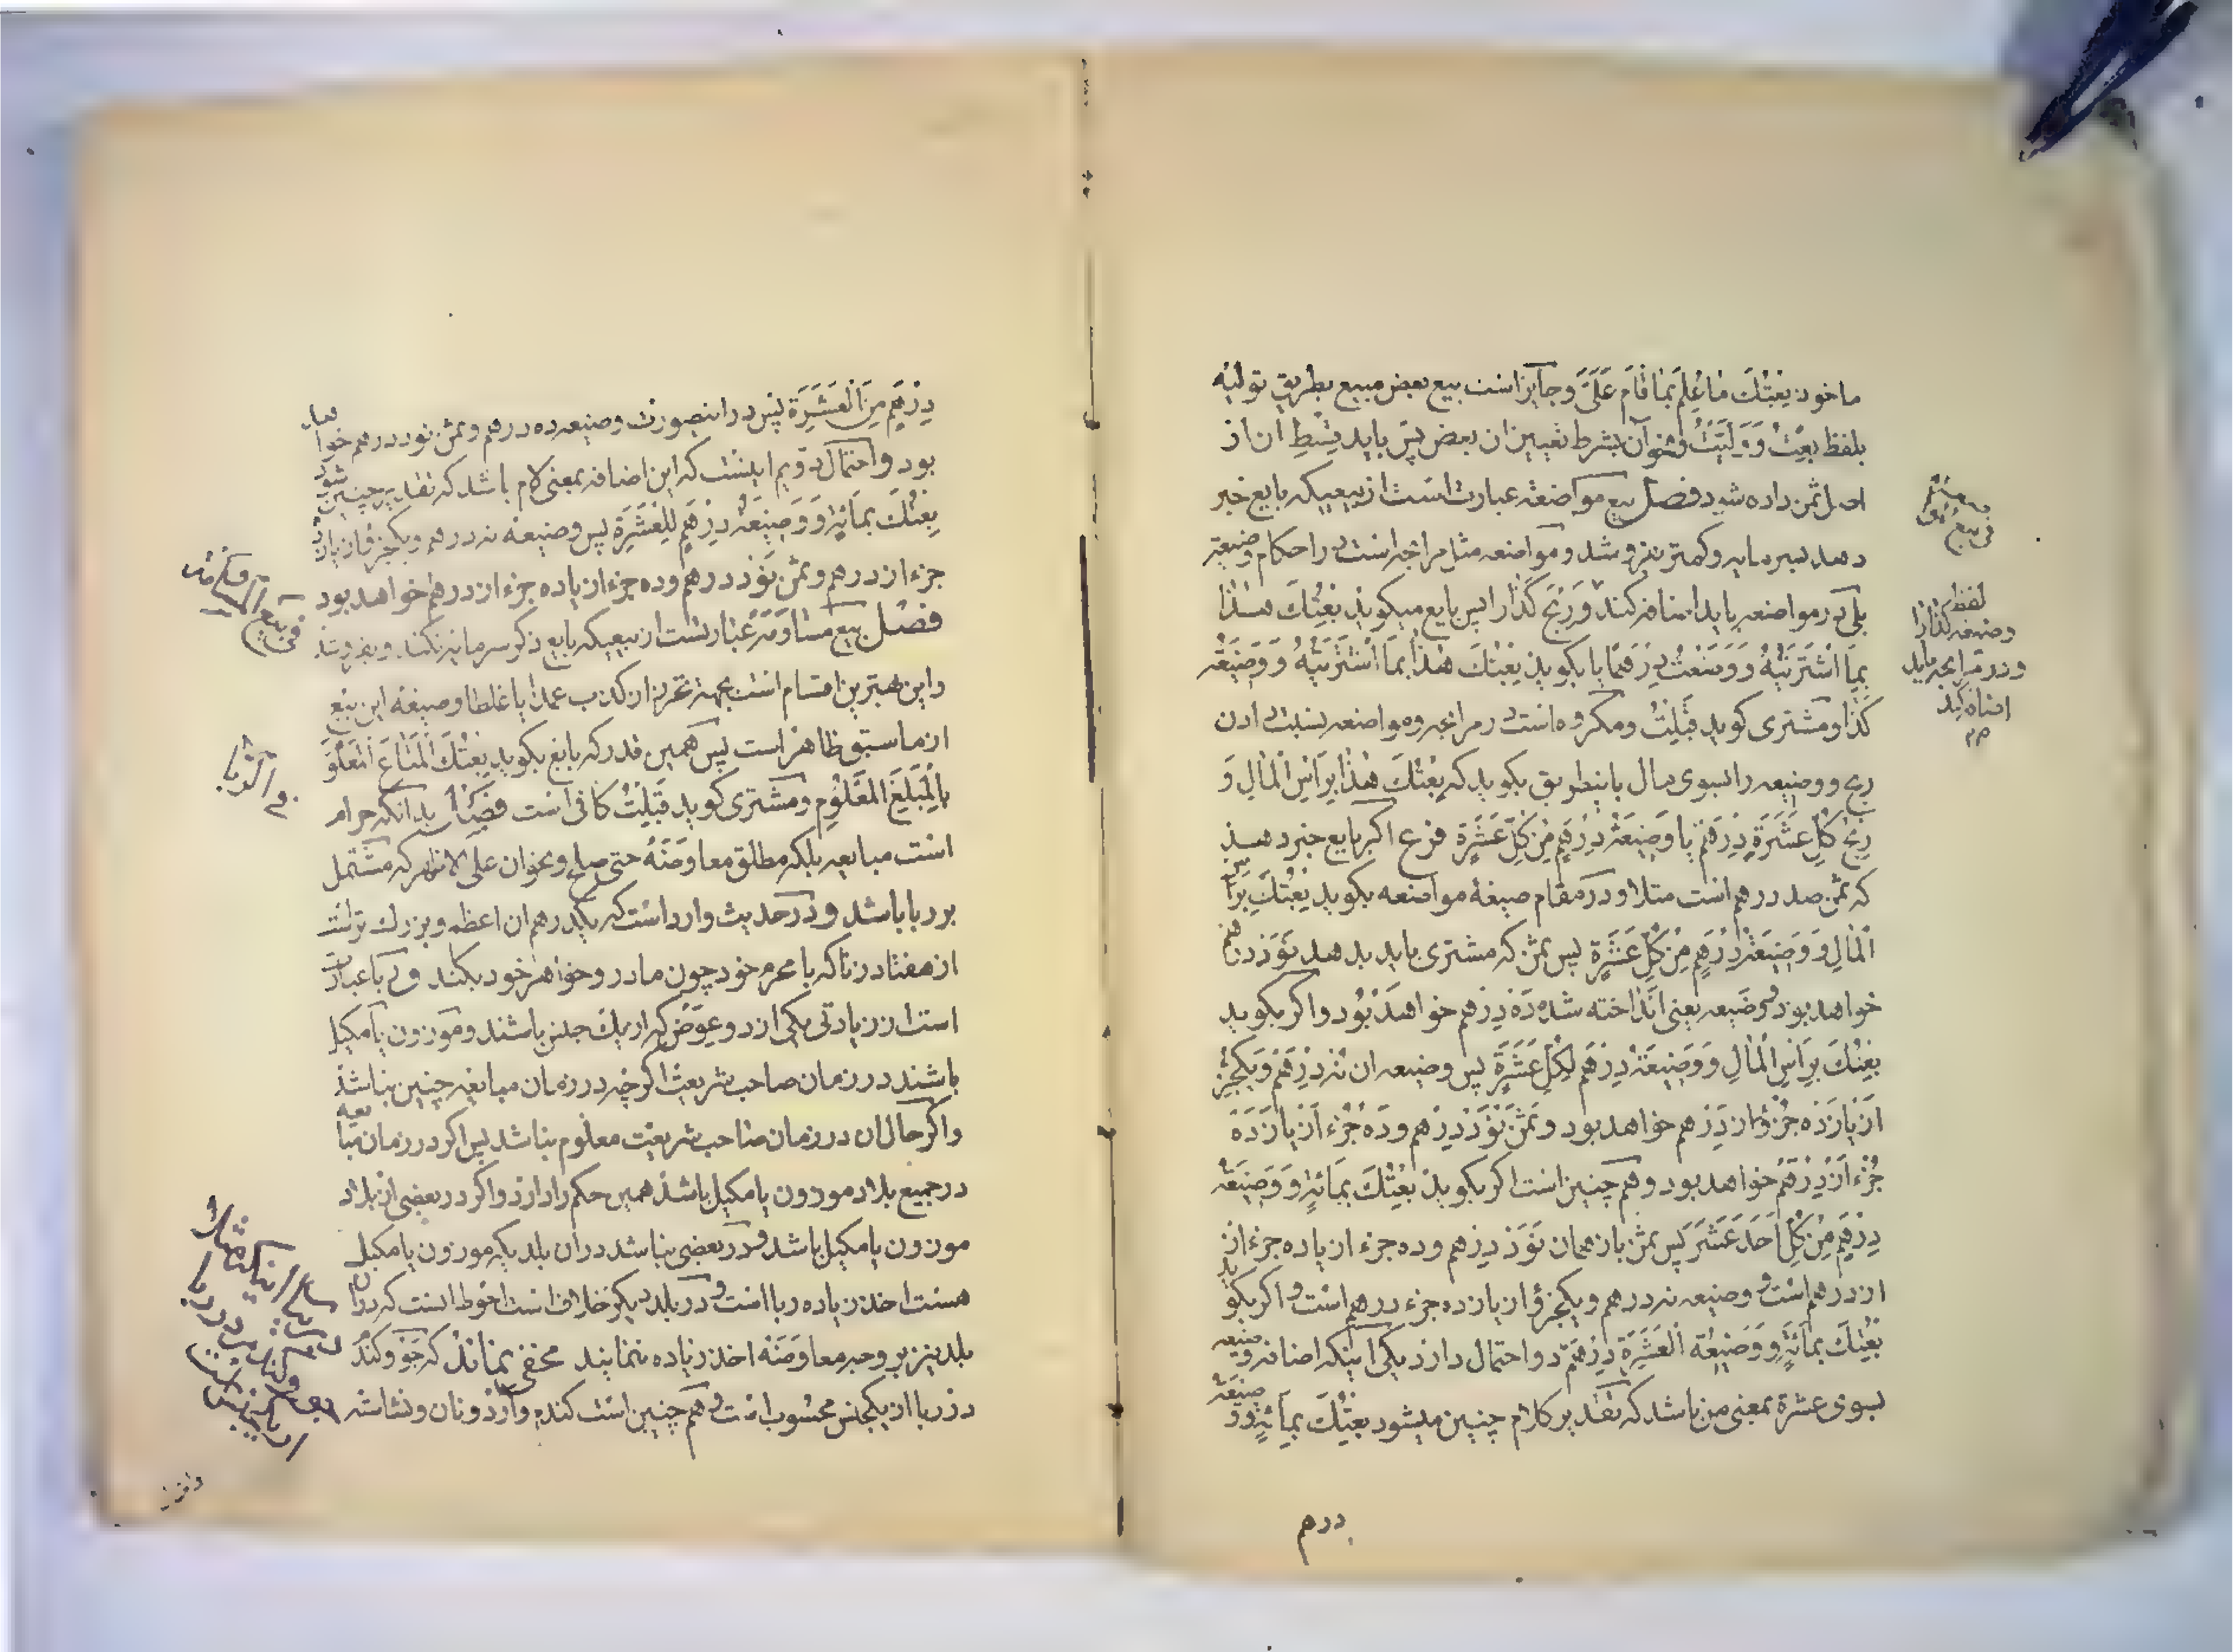 ماخوذ بعتك ما علم بما قام علی و جایز است بیع بعض مبیع بطریق تولیه
بلفظ بعت و ولیت و نحو آن بشرط تعیین ان بعض پس باید بقسط ان از
اصل ثمن داده شود فصل بیع مواضعه عبارت است از بیعیکه بایع خبر
دهد بسرمایه و کمتر بفروشد و مواضعه مثل مرابحه است در احکام و صیغه
بلی در مواضعه باید اضافه کند و ربح کذا را پس بایع میکوید بعتك هذا
بما اشتریته و وضعت درهما یا بکوید بعتك هذا بما اشتریته و وضیعة
کذا و مشتری کوید قبلت و مکروه است در مرابحه و مواضعه نسبت دادن
ربح و وضیعه را بسوی مال باینطریق بکوید که بعتك هذا براس المال و
ربح کل عشرة درهم یا وضیعة درهم من کل عشرة فرع اکر بایع خبر دهد
که ثمن صد درهم است مثلا و در مقام صیغهٔ مواضعه بکوید بعتك براس
المال و وضیعة درهم من کل عشرة پس ثمن که مشتری باید بدهد نود درهم
خواهد بود و وضیعه یعنی انداخته شده ده درهم خواهد بود و اکر بکوید
بعتك براس المال و وضیعة درهم لکل عشرة پس وضیعه ان نه درهم و یکجزء
از یازده جزؤ از درهم خواهد بود و ثمن نود درهم و ده جزء از یازده
جزء از درهم خواهد بود و هم چنین است اکر بکوید بعتك بمائة و وضیعة
درهم من کل احد عشر پس ثمن باز همان نود درهم و ده جزء از یازده جزء از
از درهم است و وضیعه نه درهم و یکجزؤ از یازده جزء درهم است و اکر بکوید
بعتك بمائة و وضیعة العشرة درهم دو احتمال دارد یکی اینکه اضافه وضیعه
بسوی عشرة بمعنی من باشد که تقدیر کلام چنین میشود بعتك بمائة و وضیعة
درهم
لفظ
وضیعه کذا را
و در مرابحه باید
اضافه کند
درهم من العشرة پس در اینصورت وضیعه ده درهم و ثمن نود درهم خواهد
بود و احتمال دویم اینست که این اضافه بمعنی لام باشد که تقدیر چنین شود
بعتك بمائة و وضیعة درهم للعشرة پس وضیعه نه درهم و یکجزؤ از یازده
جزء از درهم و ثمن نود درهم و ده جزء از یازده جزء از درهم خواهد بود
فصل بیع مساومه عبارتست از بیعیکه بایع ذکر سرمایه نکند و بفروشد
و این بهترین اقسام است بجهة تحرز از کذب عمدا یا غلطا و صیغه این بیع
از ما سبق ظاهر است پس همین قدر که بایع بکوید بعتك المتاع المعلوم
بالمبلغ المعلوم و مشتری کوید قبلت کافی است فصل بدانکه حرام
است مبایعه بلکه مطلق معاوضه حتی صلح و نحو ان علی الاظهر که مشتمل
بر ربا باشد و در حدیث وارد است که یکدرهم ان اعظم و بزرك تر است
از هفتاد زنا که با محرم خود چون مادر و خواهر خود بکند و ربا عبارت
است از زیادتی یکی از دو عوض که از یك جنس باشند و موزون یا مکیل
باشند در زمان صاحب شریعت اکرچه در زمان مبایعه چنین نباشد
و اکر حال ان در زمان صاحب شریعت معلوم نباشد پس اکر در زمان مبایعه
در جمیع بلاد موزون یا مکیل باشد همین حکم را دارد و اکر در بعضی از بلاد
موزون یا مکیل باشد و در بعضی نباشد در ان بلدیکه موزون یا مکیل
هست اخذ زیاده ربا است و در بلد دیکر خلاف است احوط انست که در ان
بلد نیز بر وجه معاوضه اخذ زیاده ننمایند مخفی نماند که جو و کندم
در ربا از یکجنس محسوب است و هم چنین است کندم و ارد و نان و نشاسته
فی بیع المساومه
فی الربا